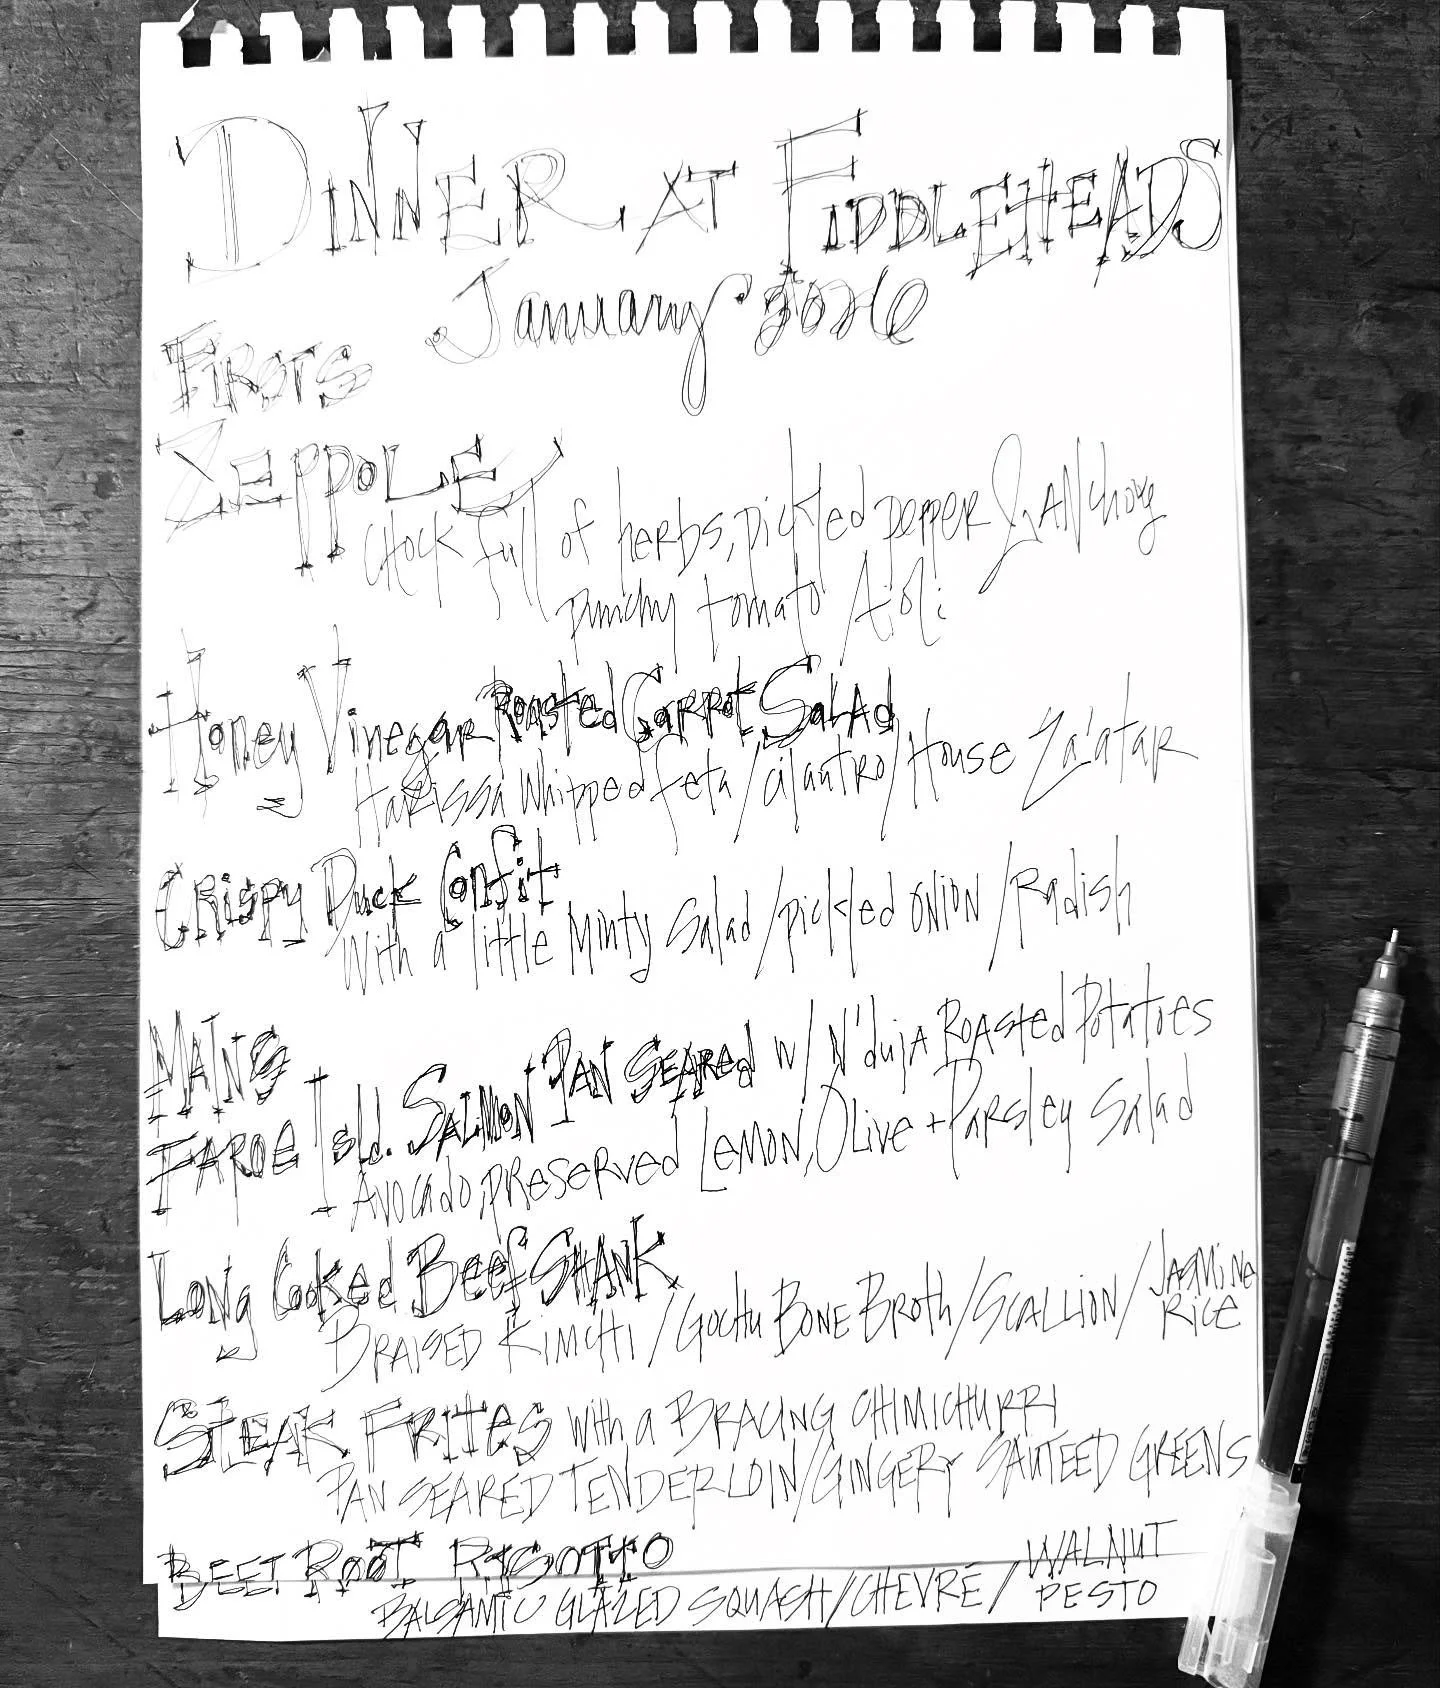 DINNER AT FIDDLEHEADS
January 2026
FIRSTS
ZEPPOLE
CHOCK full of herbs, pickled pepper & ANchovy
punchy tomato Aioli
Honey Vinegar Roasted Carrot Salad
Harissa Whipped feta/cilantro/House Za'atar
CRispy Duck Confit
With a little Minty Salad/pickled ONION/Radish
MAINS
FAROE Isld. SALMON PAN SEARED w/ N'duja ROASTED POTATOES
AVOCADO, PRESERVED LEMON, OLIVE + PARSLEY Salad
LONG COOKED BEEF SHANK
BRAISED KIMCHI/GOCHU BONE BROTH/SCALLION/JASMINE RICE
STEAK FRITES with a BRACING CHIMICHURRI
PAN SEARED TENDERLOIN/GINGERY SAUTEED GREENS
BEET ROOT RISOTTO
BALSAMIC GLAZED SQUASH/CHEVRÉ/WALNUT PESTO